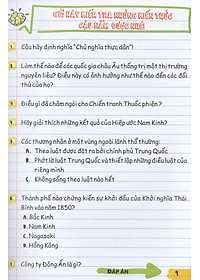 GIỜ HÃY KIỂM TRA NHỮNG KIẾN THỨC
CẬU NẮM ĐƯỢC NHÉ
1. Cậu hãy định nghĩa "Chủ nghĩa thực dân"!
2. Làm thế nào để các quốc gia châu Âu thống trị một thị trường
nguyên liệu? Điều này có ảnh hưởng như thế nào đến các đối
thủ của họ?
3. Điều gì đã châm ngòi cho Chiến tranh Thuốc phiện?
4. Hãy giải thích những kết quả của Hiệp ước Nam Kinh?
5. Các thương nhân ở một vùng ngoài lãnh thổ thường:
A. Theo luật được đặt ra bởi chính phủ Trung Quốc
B. Phớt lờ luật Trung Quốc và thiết lập những điều luật của
riêng mình
C. Không sống theo luật nào hết
6. Thành phố nào chứng kiến sự khởi đầu của Khởi nghĩa Thái
Bình vào năm 1850?
A. Bắc Kinh
B. Nam Kinh
C. Nagasaki
D. Hồng Kông
7. Công ty Đông Ấn là gì?
ĐÁP ÁN
9